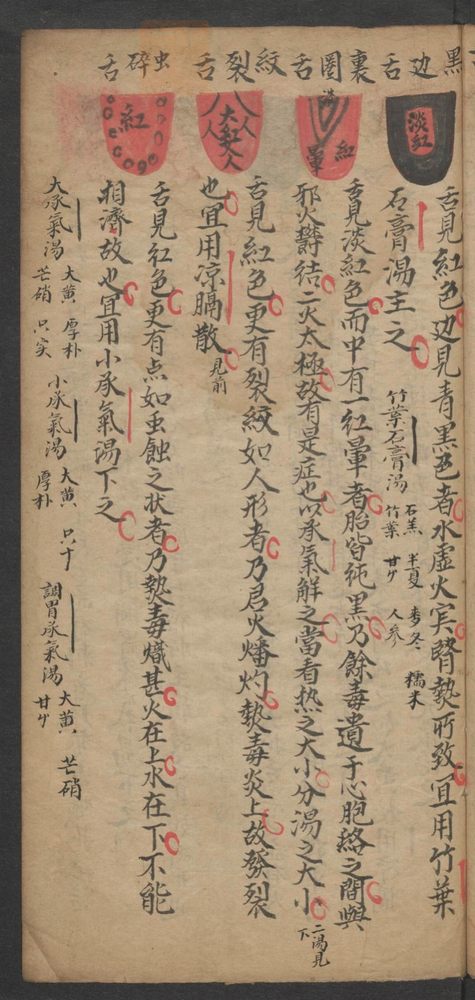 黑
舌边
舌圈裏
舌裂紋
舌碎虫
淡紅
紅暈
人人大紅人人
紅
舌見紅色边見青黑色者水虛火实腎熱所致宜用竹葉
石膏湯主之
竹葉石膏湯 石羔 半夏 麥冬 糯米
竹葉 甘 人参
舌見淡紅色而中有一紅暈者胎皆純黑乃餘毒遺于心胞絡之間與
邪火欝结二火太極故有是症也以承氣解之當看热之大小分湯之大小
二湯見下
舌見紅色更有裂紋如人形者乃君火燔灼热毒炎上故發裂
也宜用凉膈散
見前
舌見红色更有点如虫蝕之状者乃热毒熾甚火在上水在下不能
相濟故也宜用小承氣湯下之
大承氣湯 大黄 厚朴
芒硝 只实
小承氣湯 大黄 只十
厚朴
調胃承氣湯 大黄 芒硝
甘